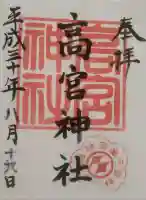 奉拝
高宮神社
平成三十年八月十六日
高宮神社